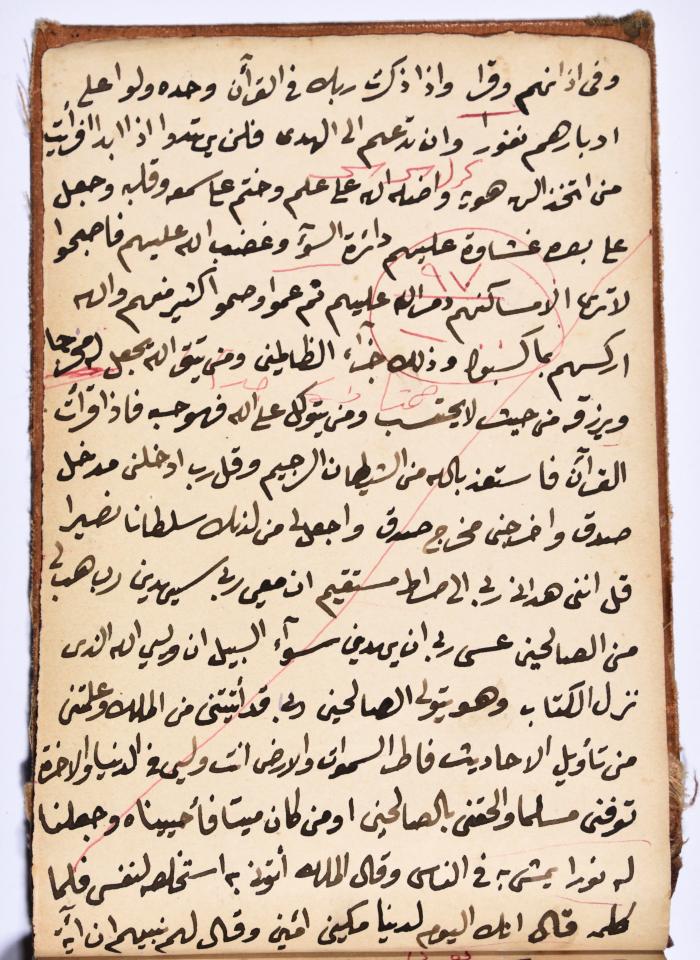 وفى اذانهم وقرا واذا ذكرت ربك فى القرآن وحده ولوا على
ادبارهم نفورا وان تدعهم الى الهدى فلن يهتدوا اذا ابدا افرأيت
من اتخذ الهه هويه واضله الله على علم وختم على سمعه وقلبه وجعل
على بصره غشاوة عليهم دائرة السوٓء وغضب الله عليهم فاصبحوا
لا ترى الا مساكنهم دمر الله عليهم ثم عموا وصموا كثير منهم والله
اركسهم بما كسبوا وذلك جزآء الظالمين ومن يتق الله يجعل له مخرجا
ويرزقه من حيث لا يحتسب ومن يتوكل على الله فهو حسبه فاذا قرأت
القرآن فاستعذ بالله من الشيطان الرجيم وقل رب ادخلنى مدخل
صدق واخرجنى مخرج صدق واجعل لى من لدنك سلطانا نصيرا
قل اننى هدانى ربى الى صراط مستقيم ان معى ربى سيهدين رب هب لى
من الصالحين عسى ربى ان يهدينى سوآء السبيل ان وليي الله الذى
نزل الكتاب وهو يتولى الصالحين رب قد أتيتنى من الملك وعلمتنى
من تأويل الاحاديث فاطر السموات والارض انت وليى فى الدنيا والاخرة
توفنى مسلما والحقنى بالصالحين اومن كان ميتا فأحييناه وجعلنا
له نورا يمشى به فى الناس وقال الملك أتونى به استخلصه لنفسى فلما
كلمه قال انك اليوم لدينا مكين امين وقال لهم نبيهم ان آية
٩٧